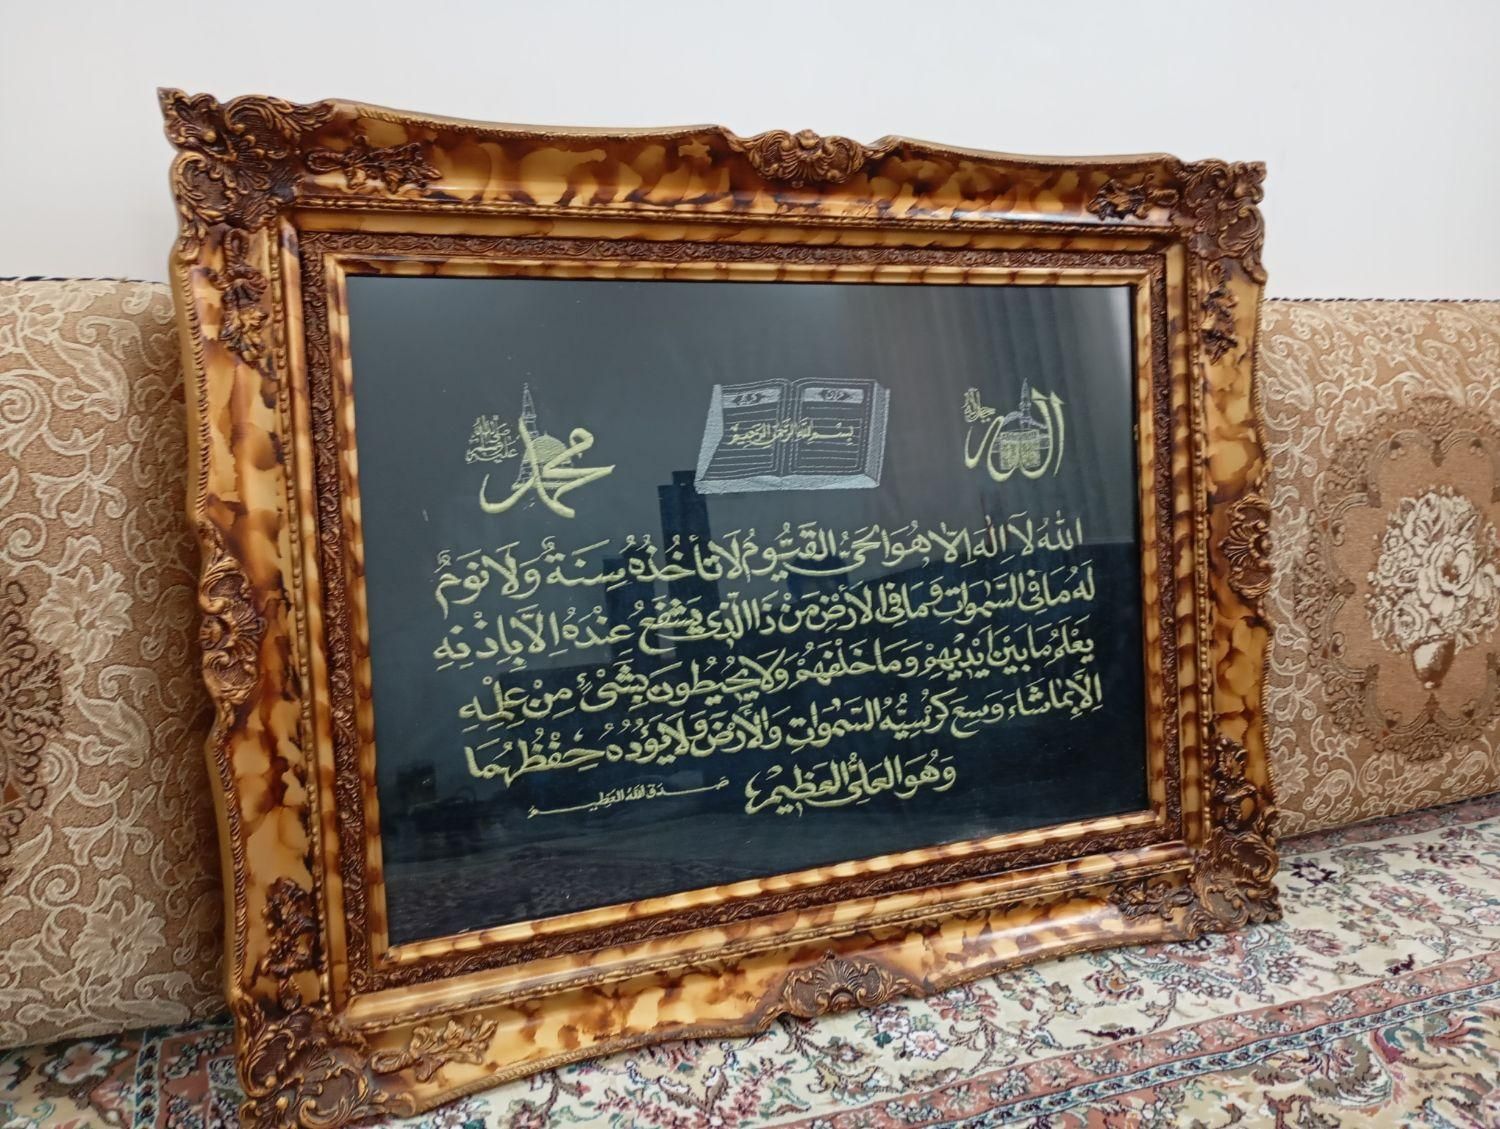 الله
جل جلاله
بسم الله الرحمن الرحيم
محمد
صلى الله عليه وسلم
اللهُ لَا اِلٰهَ اِلَّا هُوَ الحَيُّ القَيُّومُ لَا تَأخُذُهُ سِنَةٌ وَلَا نَوْمٌ
لَهُ مَا فِي السَّمٰوَاتِ وَمَا فِي الاَرْضِ مَنْ ذَا الَّذِي يَشْفَعُ عِنْدَهُ اِلَّا بِاِذْنِهِ
يَعْلَمُ مَا بَيْنَ اَيْدِيهِمْ وَمَا خَلْفَهُمْ وَلَا يُحِيطُونَ بِشَيْءٍ مِنْ عِلْمِهِ
اِلَّا بِمَا شَاءَ وَسِعَ كُرْسِيُّهُ السَّمٰوَاتِ وَالاَرْضَ وَلَا يَؤُدُهُ حِفْظُهُمَا
وَهُوَ العَلِيُّ العَظِيْمُ
صدق الله العظيم